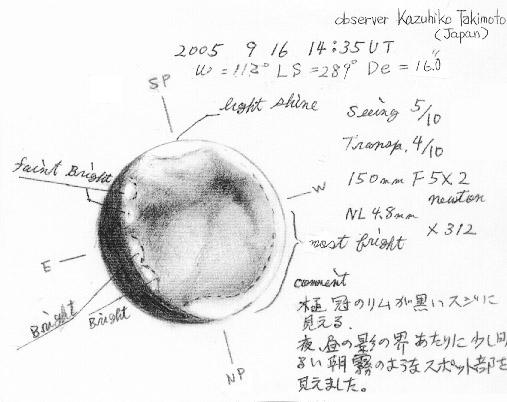 observer Kazuhiko Takimoto
(Japan)
2005 9 16 14:35 UT
ω = 113° LS = 289° De = 16.0"
SP
light shine
Seeing 5/10
Transp. 4/10
faint Bright
150mm F5X2
newton
W
NL 4.8mm
X312
most bright
E
Bright
Bright
NP
comment
極冠のリムが黒いスジに
見える.
夜、昼の影の界あたりに少し明
るい朝霧のようなスポット部を
見えました。